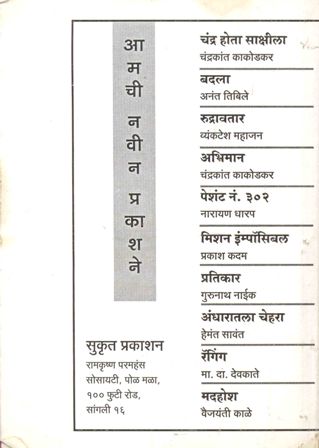 आमची नवीन प्रकाशने
चंद्र होता साक्षीला
चंद्रकांत काकोडकर
बदला
अनंत तिबिले
रुद्रावतार
व्यंकटेश महाजन
अभिमान
चंद्रकांत काकोडकर
पेशंट नं. ३०२
नारायण धारप
मिशन इंम्पॉसिबल
प्रकाश कदम
प्रतिकार
गुरुनाथ नाईक
अंधारातला चेहरा
हेमंत सावंत
रॅगिंग
मा. दा. देवकाते
मदहोश
वैजयंती काळे
सुकृत प्रकाशन
रामकृष्ण परमहंस
सोसायटी, पोळ मळा,
१०० फुटी रोड,
सांगली १६